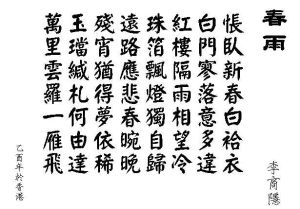 春雨
李商隱
悵臥新春白袷衣
白門寥落意多違
紅樓隔雨相望冷
珠箔飄燈獨自歸
遠路應悲春晼晚
殘宵猶得夢依稀
玉璫緘札何由達
萬里雲羅一雁飛
乙酉年於香港